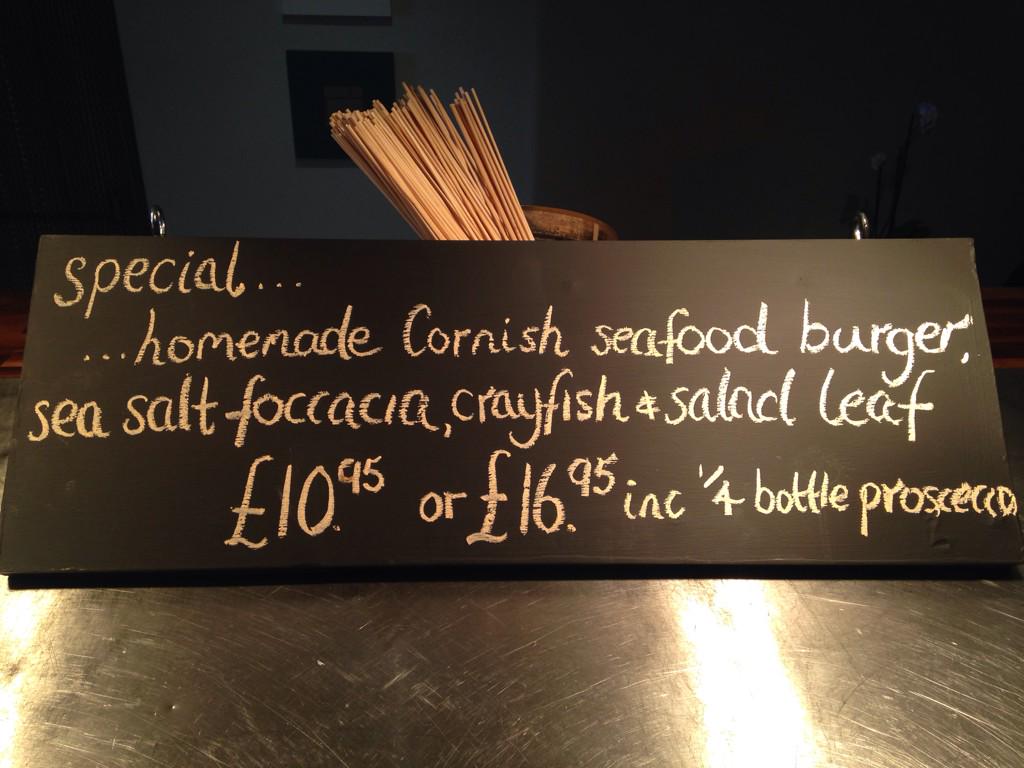 special...
...homenade Cornish seafood burger,
sea salt foccacia, crayfish & salad leaf
£10.95 or £16.95 inc 1/4 bottle proscecco